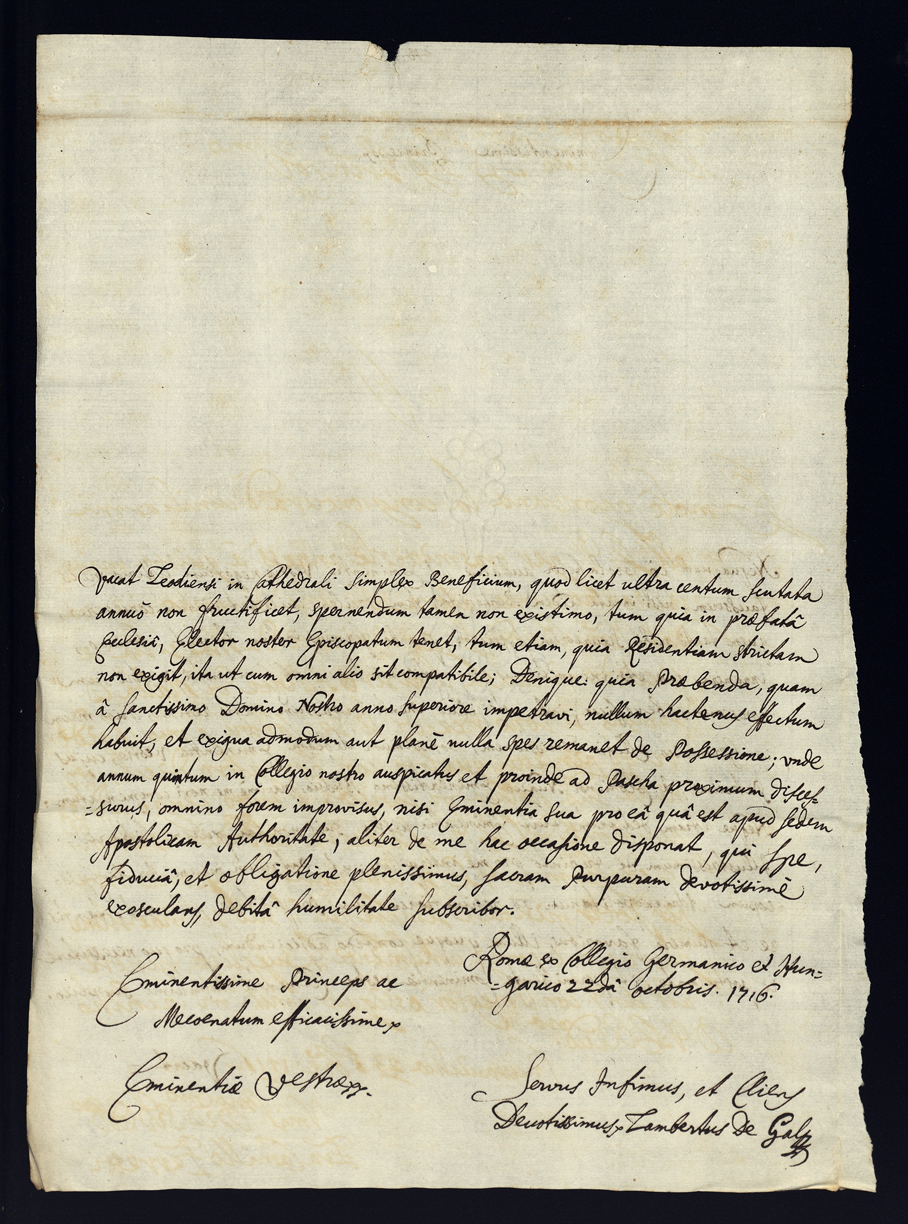 Vacat Leodiensi in Cathedrali simplex Beneficium, quod licet ultra centum scutata
annuò non fructificet, spernendum tamen non existimo, tum quia in præfatâ
Ecclesiâ, Elector noster Episcopatum tenet, tum etiam, quia Residentiam strictam
non exigit, ita ut cum omni alio sit compatibile; Denique quia Præbenda, quam
â Sanctissimo Domino Nostro anno superiore impetravi, nullum hactenus effectum
habuit, et exigua admodum aut planè nulla spes remanet de Possessione; unde
annum quintum in Collegio nostro auspicatus et proinde ad Pascha proximum disces-
=surus, omnino forem improvisus, nisi Eminentia sua pro eâ quâ est apud sedem
Apostolicam Authoritate, aliter de me hac occasione disponat, qui spe,
fiduciâ, et obligatione plenissimus, sacram Purpuram devotissimè
exosculans, debitâ humilitate subscribor.
Romæ ex Collegio Germanico et Hun=
=garico 22dâ octobris. 1716.
Eminentissime Princeps ac
Mecoenatum efficacissime
Eminentiæ Vestræ
Servus Infimus, et Cliens
Devotissimus Lambertus De